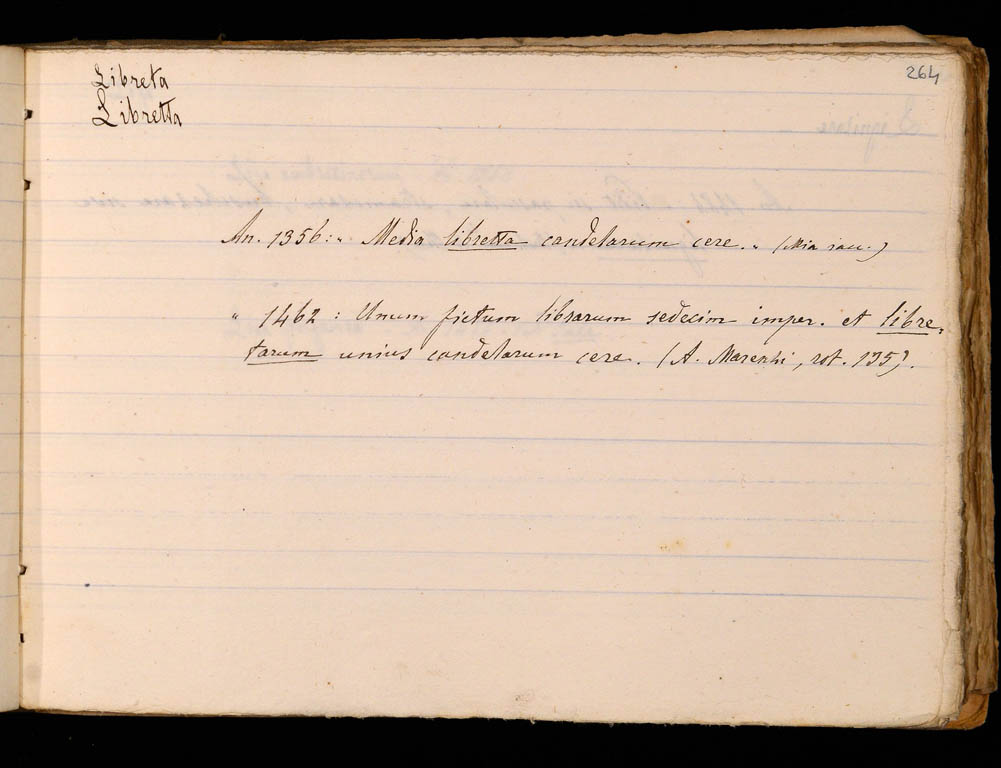 264
Libreta
Libretta
An. 1356: „ Media libretta candelarum cere. „ (Mia
„ 1462 : Unum fictum librarum sedecim imper. et libre-
tarum unius candelarum cere. (A. Marenzi, rot. 135).